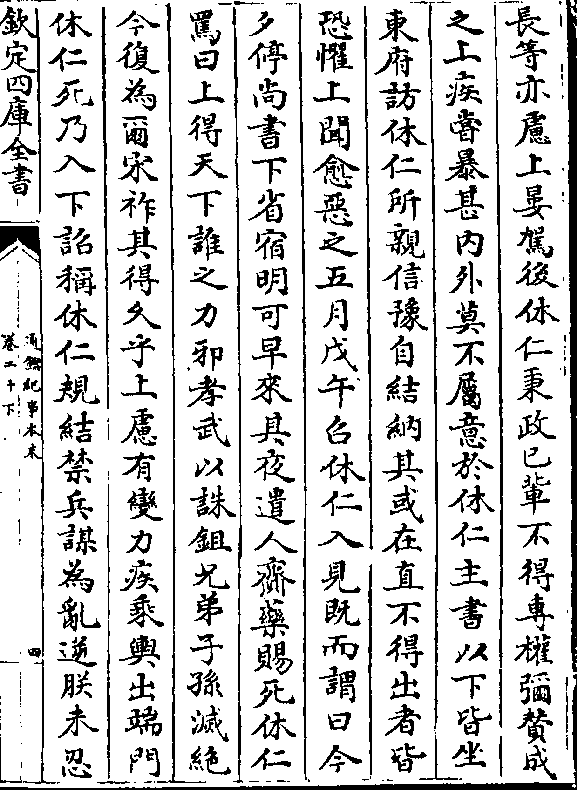 長等亦慮上晏駕後休仁秉政已輩不得專權彌贊成
之上疾嘗暴甚内外莫不屬意於休仁主書以下皆坐
東府訪休仁所親信豫自結納其或在直不得出者皆
恐懼上聞愈惡之五月戊午召休仁入見既而謂曰今
夕停尚書下省宿明可早來其夜遣人齎藥賜死休仁
罵曰上得天下誰之力邪孝武以誅鉏兄弟子孫滅絶
今復為爾宋祚其得久乎上慮有變力疾乘輿出端門
休仁死乃入下詔稱休仁規結禁兵謀為亂逆朕未忍
欽定四庫全書
通鑑紀事本末
卷二十下
四